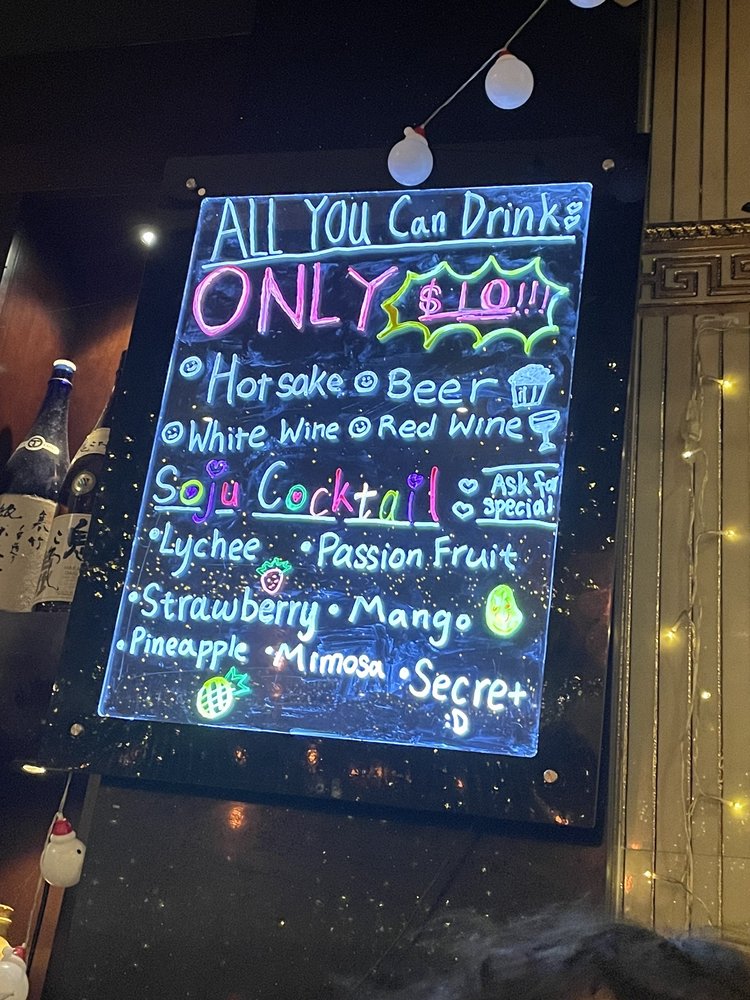 ALL YOU Can Drink
ONLY $10!!!
Hot sake Beer
White Wine Red Wine
Soju Cocktail
Ask for
special
•Lychee •Passion Fruit
•Strawberry •Mango
•Pineapple •Mimosa •Secret
:D